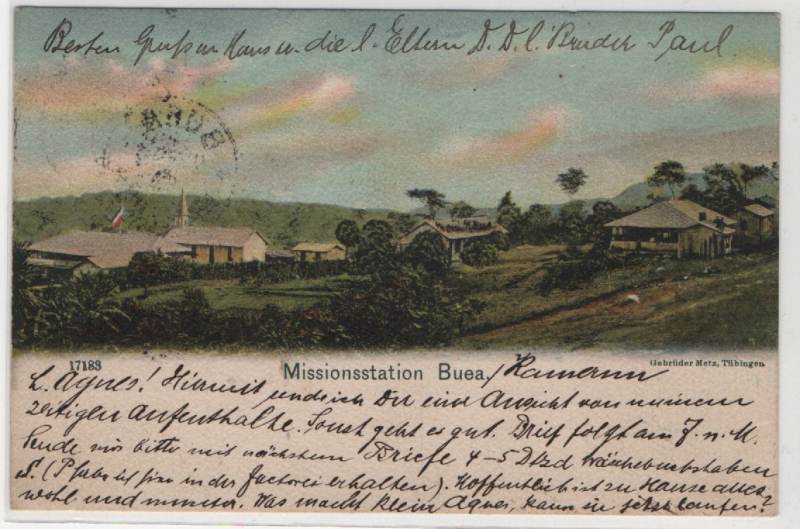 Besten Gruss an Hans u. die l. Eltern D. D. l. Bruder Paul
BUEA
17183
Missionsstation Buea, Kamerun
Gebrüder Metz, Tübingen
L. Agnes! Hiermit und sich Dir eine Ansicht von meinem
zeitigen Aufenthalte. Sonst geht es gut. Brief folgt am 7. n. M.
Sende mir bitte mit nächstem Briefe 4-5 Dtzd Wäschebuchstaben
S. (P habe ich hier in der Factorei erhalten). Hoffentlich ist zu Hause alles
wohl und munter. Was macht klein Agnes, kann sie jetzt laufen?